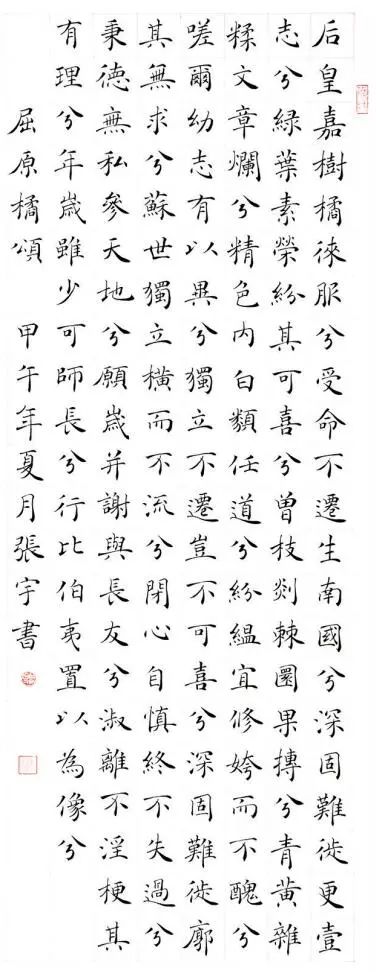 后皇嘉樹橘徠服兮受命不遷生南國兮深固難徙更壹
志兮綠葉素榮紛其可喜兮曾枝剡棘圜果摶兮青黃雜
糅文章爛兮精色內白類任道兮紛縕宜修姱而不醜兮
嗟爾幼志有以異兮獨立不遷豈不可喜兮深固難徙廓
其無求兮蘇世獨立橫而不流兮閉心自慎終不失過兮
秉德無私參天地兮願歲并謝與長友兮淑離不淫梗其
有理兮年歲雖少可師長兮行比伯夷置以為像兮
屈原橘頌 甲午年夏月張宇書